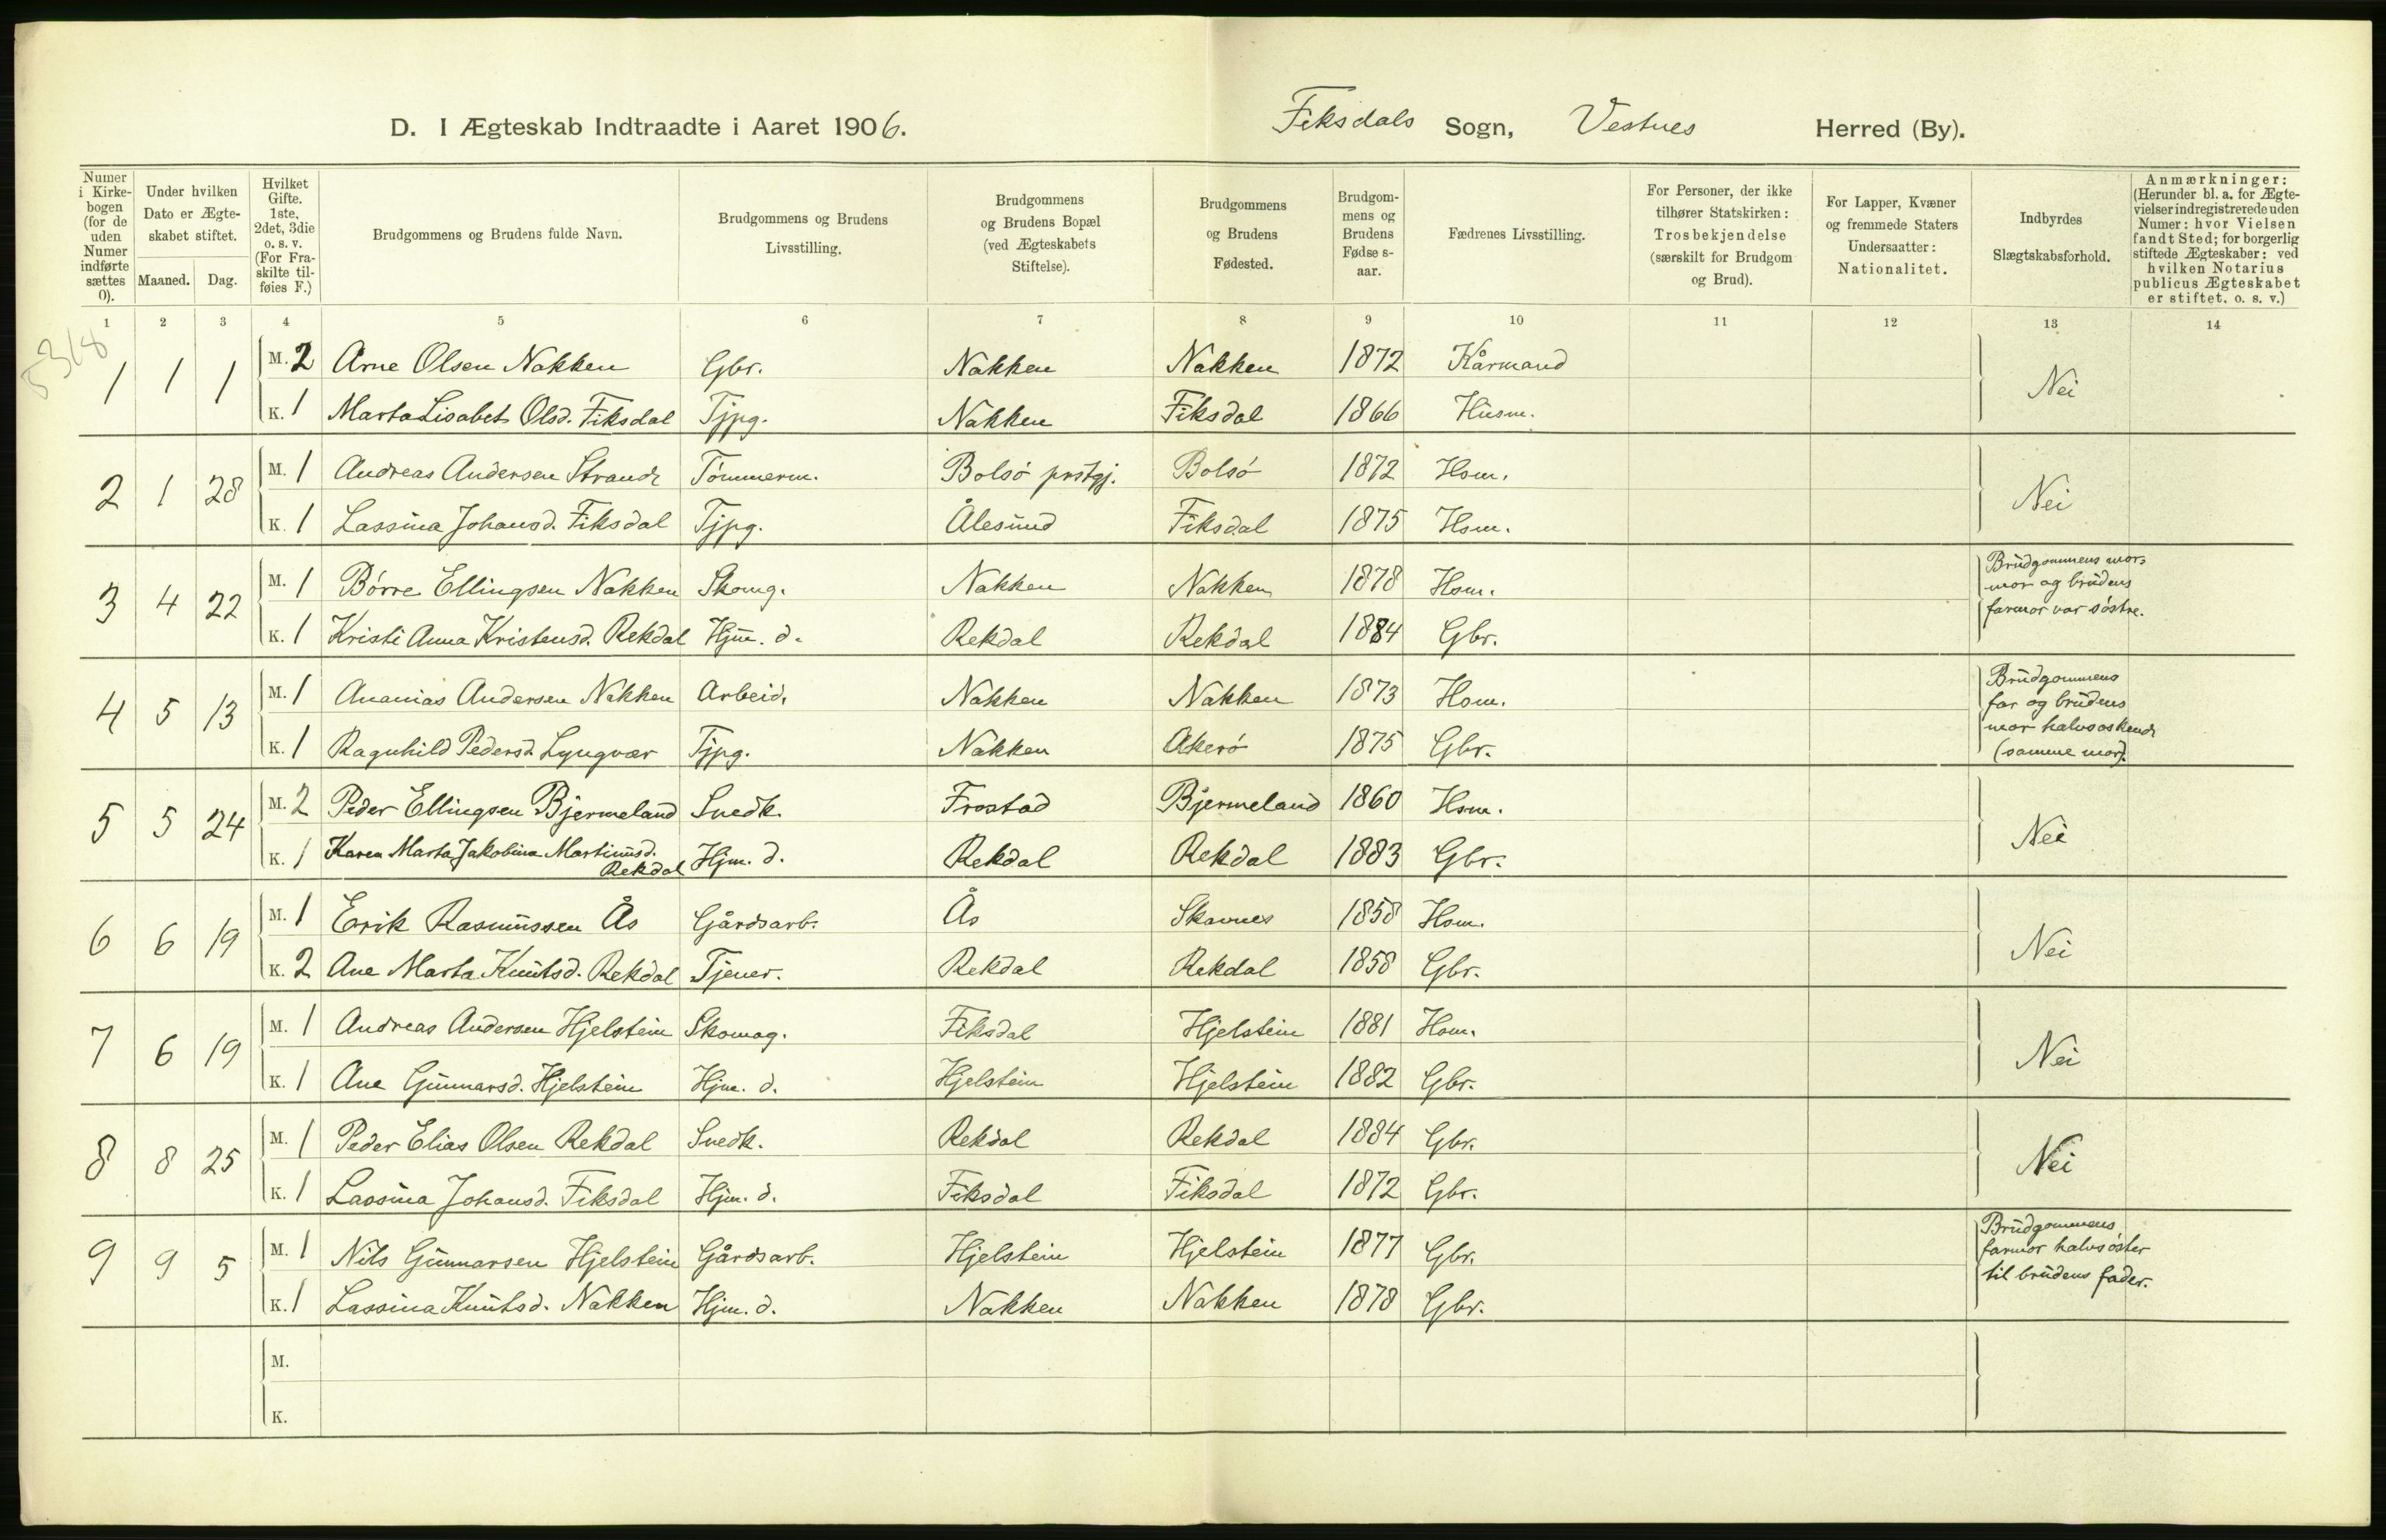 D. I Ægteskab Indtraadte i Aaret 1906. Fiksdals Sogn, Vestnes Herred (By).
Numer i Kirke-bogen (for de uden Numer indførte sættes 0).
Under hvilken Dato er Ægte-skabet stiftet.
Maaned. Dag.
Hvilket Gifte. 1ste, 2det, 3die o. s. v. (For Fra-skilte til-føies F.)
Brudgommens og Brudens fulde Navn.
Brudgommens og Brudens Livsstilling.
Brudgommens og Brudens Bopæl (ved Ægteskabets Stiftelse).
Brudgommens og Brudens Fødested.
Brudgom-mens og Brudens Fødse s-aar.
Fædrenes Livsstilling.
For Personer, der ikke tilhører Statskirken: Trosbekjendelse (særskilt for Brudgom og Brud).
For Lapper, Kvæner og fremmede Staters Undersaatter: Nationalitet.
Indbyrdes Slægtskabsforhold.
Anmærkninger: (Herunder bl. a. for Ægte-vielser indregistrerede uden Numer: hvor Vielsen fandt Sted; for borgerlig stiftede Ægteskaber: ved hvilken Notarius publicus Ægteskabet er stiftet, o. s. v.)
1 2 3 4 5 6 7 8 9 10 11 12 13 14
1 1 1 M. 2 Arne Olsen Nakken Gbr. Nakken Nakken 1872 Kårmand Nei
K. 1 Marta Lisabet Olsd. Fiksdal Tjpg. Nakken Fiksdal 1866 Husm.
2 1 28 M. 1 Andreas Andersen Strande Tømmerm. Bolsö prstgj. Bolsö 1872 Hsm. Nei
K. 1 Lassina Johansd. Fiksdal Tjpg. Ålesund Fiksdal 1875 Hsm.
3 4 22 M. 1 Børre Ellingsen Nakken Skomg. Nakken Nakken 1878 Hsm. Brudgommens mor-mor og brudens farmor var søstre.
K. 1 Kristi Anna Kristensd. Rekdal Hjm. d. Rekdal Rekdal 1884 Gbr.
4 5 13 M. 1 Ananias Andersen Nakken Arbeid. Nakken Nakken 1873 Hsm. Brudgommens far og brudens mor halvsøskende (samme mor).
K. 1 Ragnhild Pedersd. Lyngvær Tjpg. Nakken Akerö 1875 Gbr.
5 5 24 M. 2 Peder Ellingsen Bjermeland Snedk. Frostad Bjermeland 1860 Hsm. Nei
K. 1 Karen Marta Jakobina Martinusd. Rekdal Hjm. d. Rekdal Rekdal 1883 Gbr.
6 6 19 M. 1 Erik Rasmussen Ås Gårdsarb. Ås Skavnes 1858 Hsm. Nei
K. 2 Ane Marta Knutsd. Rekdal Tjener. Rekdal Rekdal 1858 Gbr.
7 6 19 M. 1 Andreas Andersen Hjelstein Skomag. Fiksdal Hjelstein 1881 Hsm. Nei
K. 1 Ane Gunnarsd. Hjelstein Hjm. d. Hjelstein Hjelstein 1882 Gbr.
8 8 25 M. 1 Peder Elias Olsen Rekdal Snedk. Rekdal Rekdal 1884 Gbr. Nei
K. 1 Lassina Johansd. Fiksdal Hjm. d. Fiksdal Fiksdal 1872 Gbr.
9 9 5 M. 1 Nils Gunnarsen Hjelstein Gårdsarb. Hjelstein Hjelstein 1877 Gbr. Brudgommens farmor halvsøster til brudens fader.
K. 1 Lassina Knutsd. Nakken Hjm. d. Nakken Nakken 1878 Gbr.
M.
K.